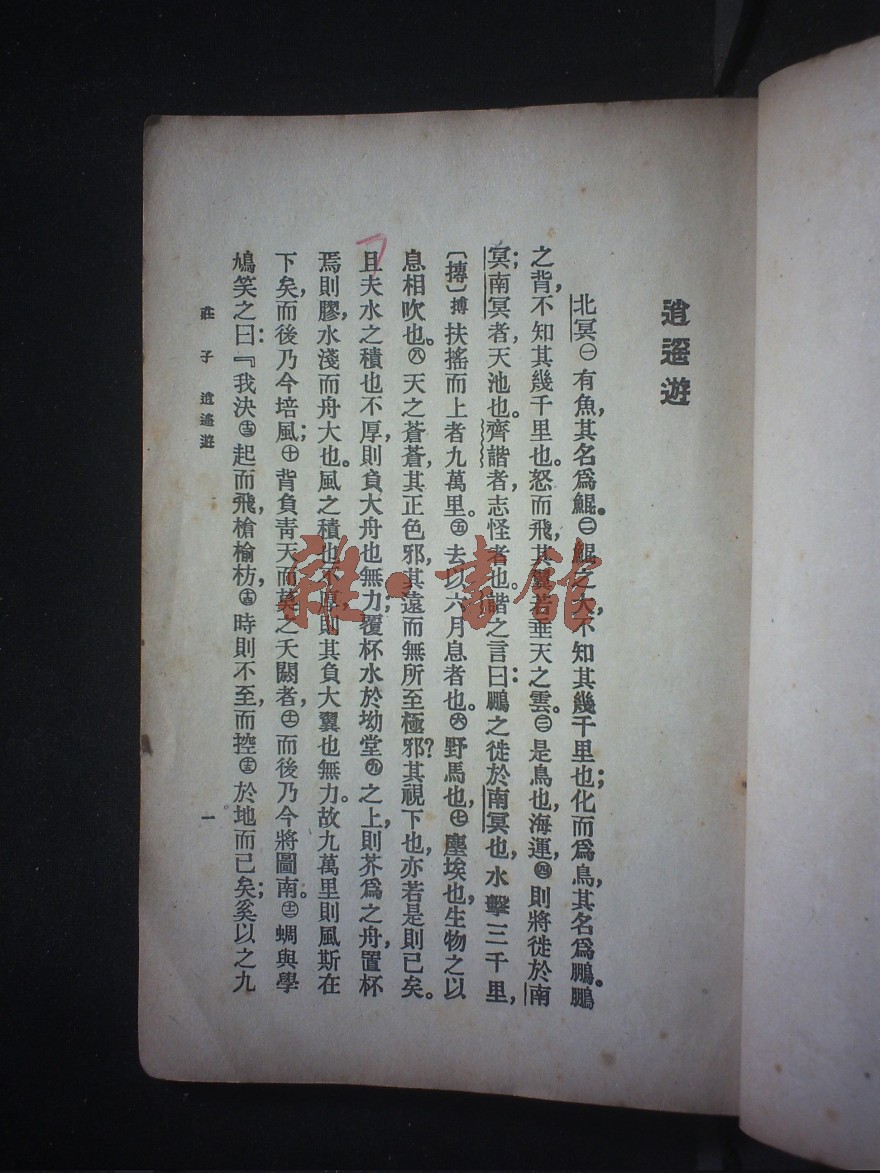 逍遙遊
北冥㊀有魚，其名爲鯤。㊁鯤之大，不知其幾千里也；化而爲鳥，其名爲鵬。鵬
之背，不知其幾千里也。怒而飛，其翼若垂天之雲。㊂是鳥也，海運，㊃則將徙於南
冥；南冥者，天池也。齊諧者，志怪者也。諧之言曰：鵬之徙於南冥也，水擊三千里，
〔摶〕搏扶搖而上者九萬里。㊄去以六月息者也。㊅野馬也，㊆塵埃也，生物之以
息相吹也。㊇天之蒼蒼，其正色邪，其遠而無所至極邪？其視下也，亦若是則已矣。
且夫水之積也不厚，則負大舟也無力；覆杯水於坳堂㊈之上，則芥爲之舟，置杯
焉則膠，水淺而舟大也。風之積也不厚，則其負大翼也無力。故九萬里則風斯在
下矣，而後乃今培風；㊉背負靑天而莫之夭閼者，(十一)而後乃今將圖南。(十二)蜩與學
鳩笑之曰：『我決(十三)起而飛，槍榆枋，(十四)時則不至，而控(十五)於地而已矣；奚以之九
莊子 逍遙遊 一
雜·書館